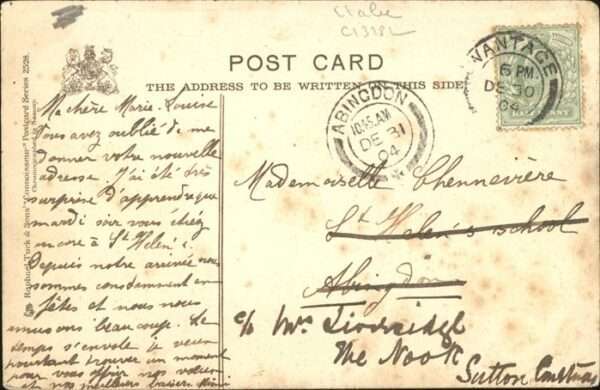 Clabe
C1318L
POST CARD
THE ADDRESS TO BE WRITTEN ON THIS SIDE
WANTAGE
6 PM
DE 30
04
ABINGDON
10.45 AM
DE 31
04
Raphael Tuck & Sons' "Connoisseur" Postcard Series 2598.
Ma chère Marie-Louise
Vous avez oublié de me
donner votre nouvelle
adresse. J'ai été très
surprise d'apprendre que
mardi soir vous étiez
encore à St Helen's.
Depuis notre arrivée nous
sommes constamment en
fêtes et nous nous
amusons beaucoup. Le
temps s'envole je veux
pourtant trouver un moment
pour vous offrir nos vœux
et nos meilleurs baisers
Mademoiselle Chennevière
St Helen's school
Abingdon
c/o Mrs
The Nook
Sutton Courtenay